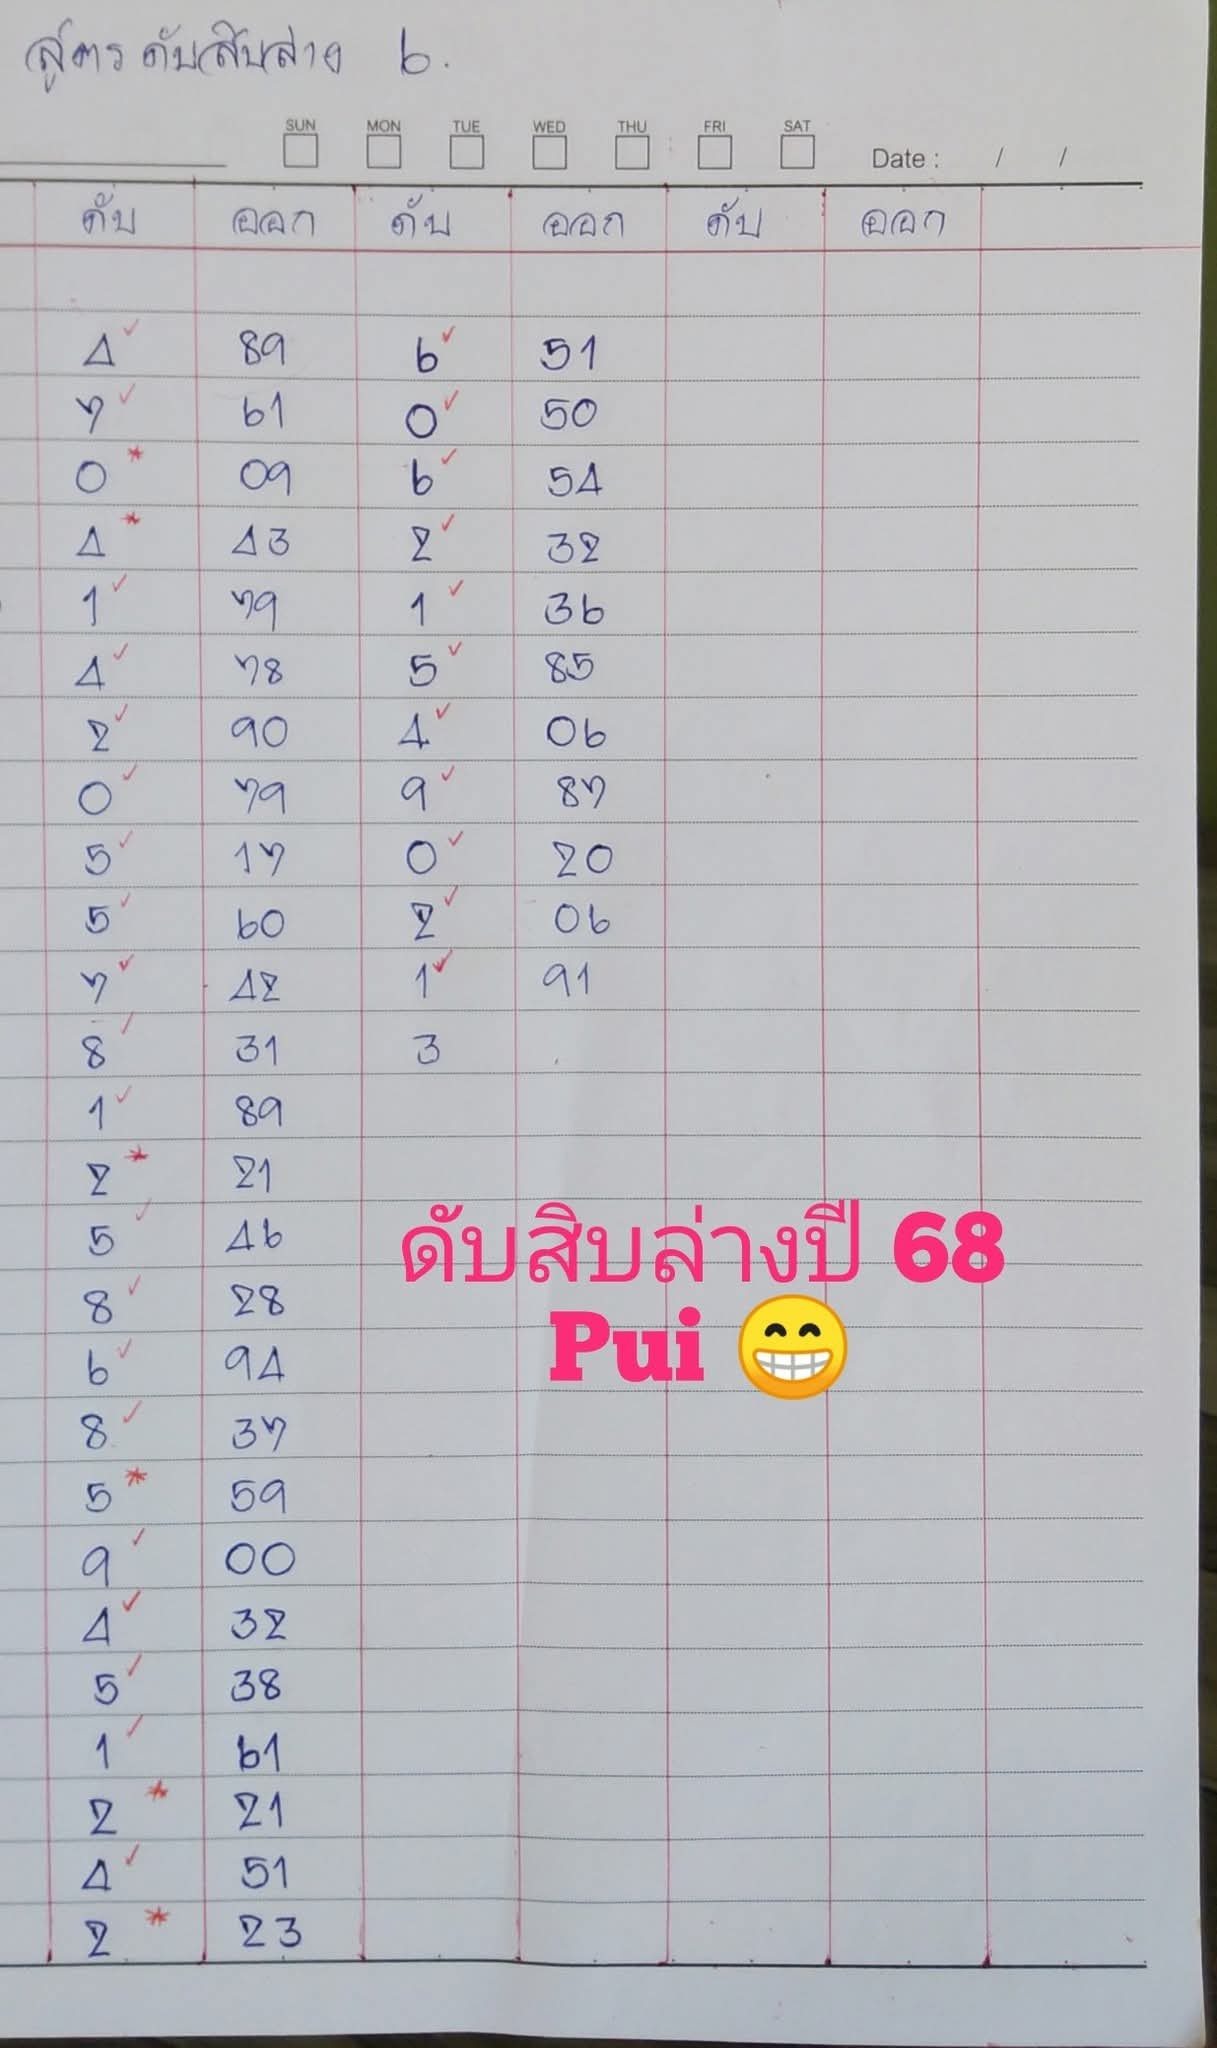 สูตร ดับสิบล่าง 6.
SUN MON TUE WED THU FRI SAT Date : / /
ดับ ออก ดับ ออก ดับ ออก
4 89 6 51
7 61 0 50
0 09 6 54
4 43 2 32
1 79 1 36
4 78 5 85
2 90 4 06
0 79 9 87
5 17 0 20
5 60 2 06
7 42 1 91
8 31 3
1 89
2 21
5 46
8 28
6 94
8 37
5 59
9 00
4 32
5 38
1 61
2 21
4 51
2 23
ดับสิบล่างปี 68
Pui 😁